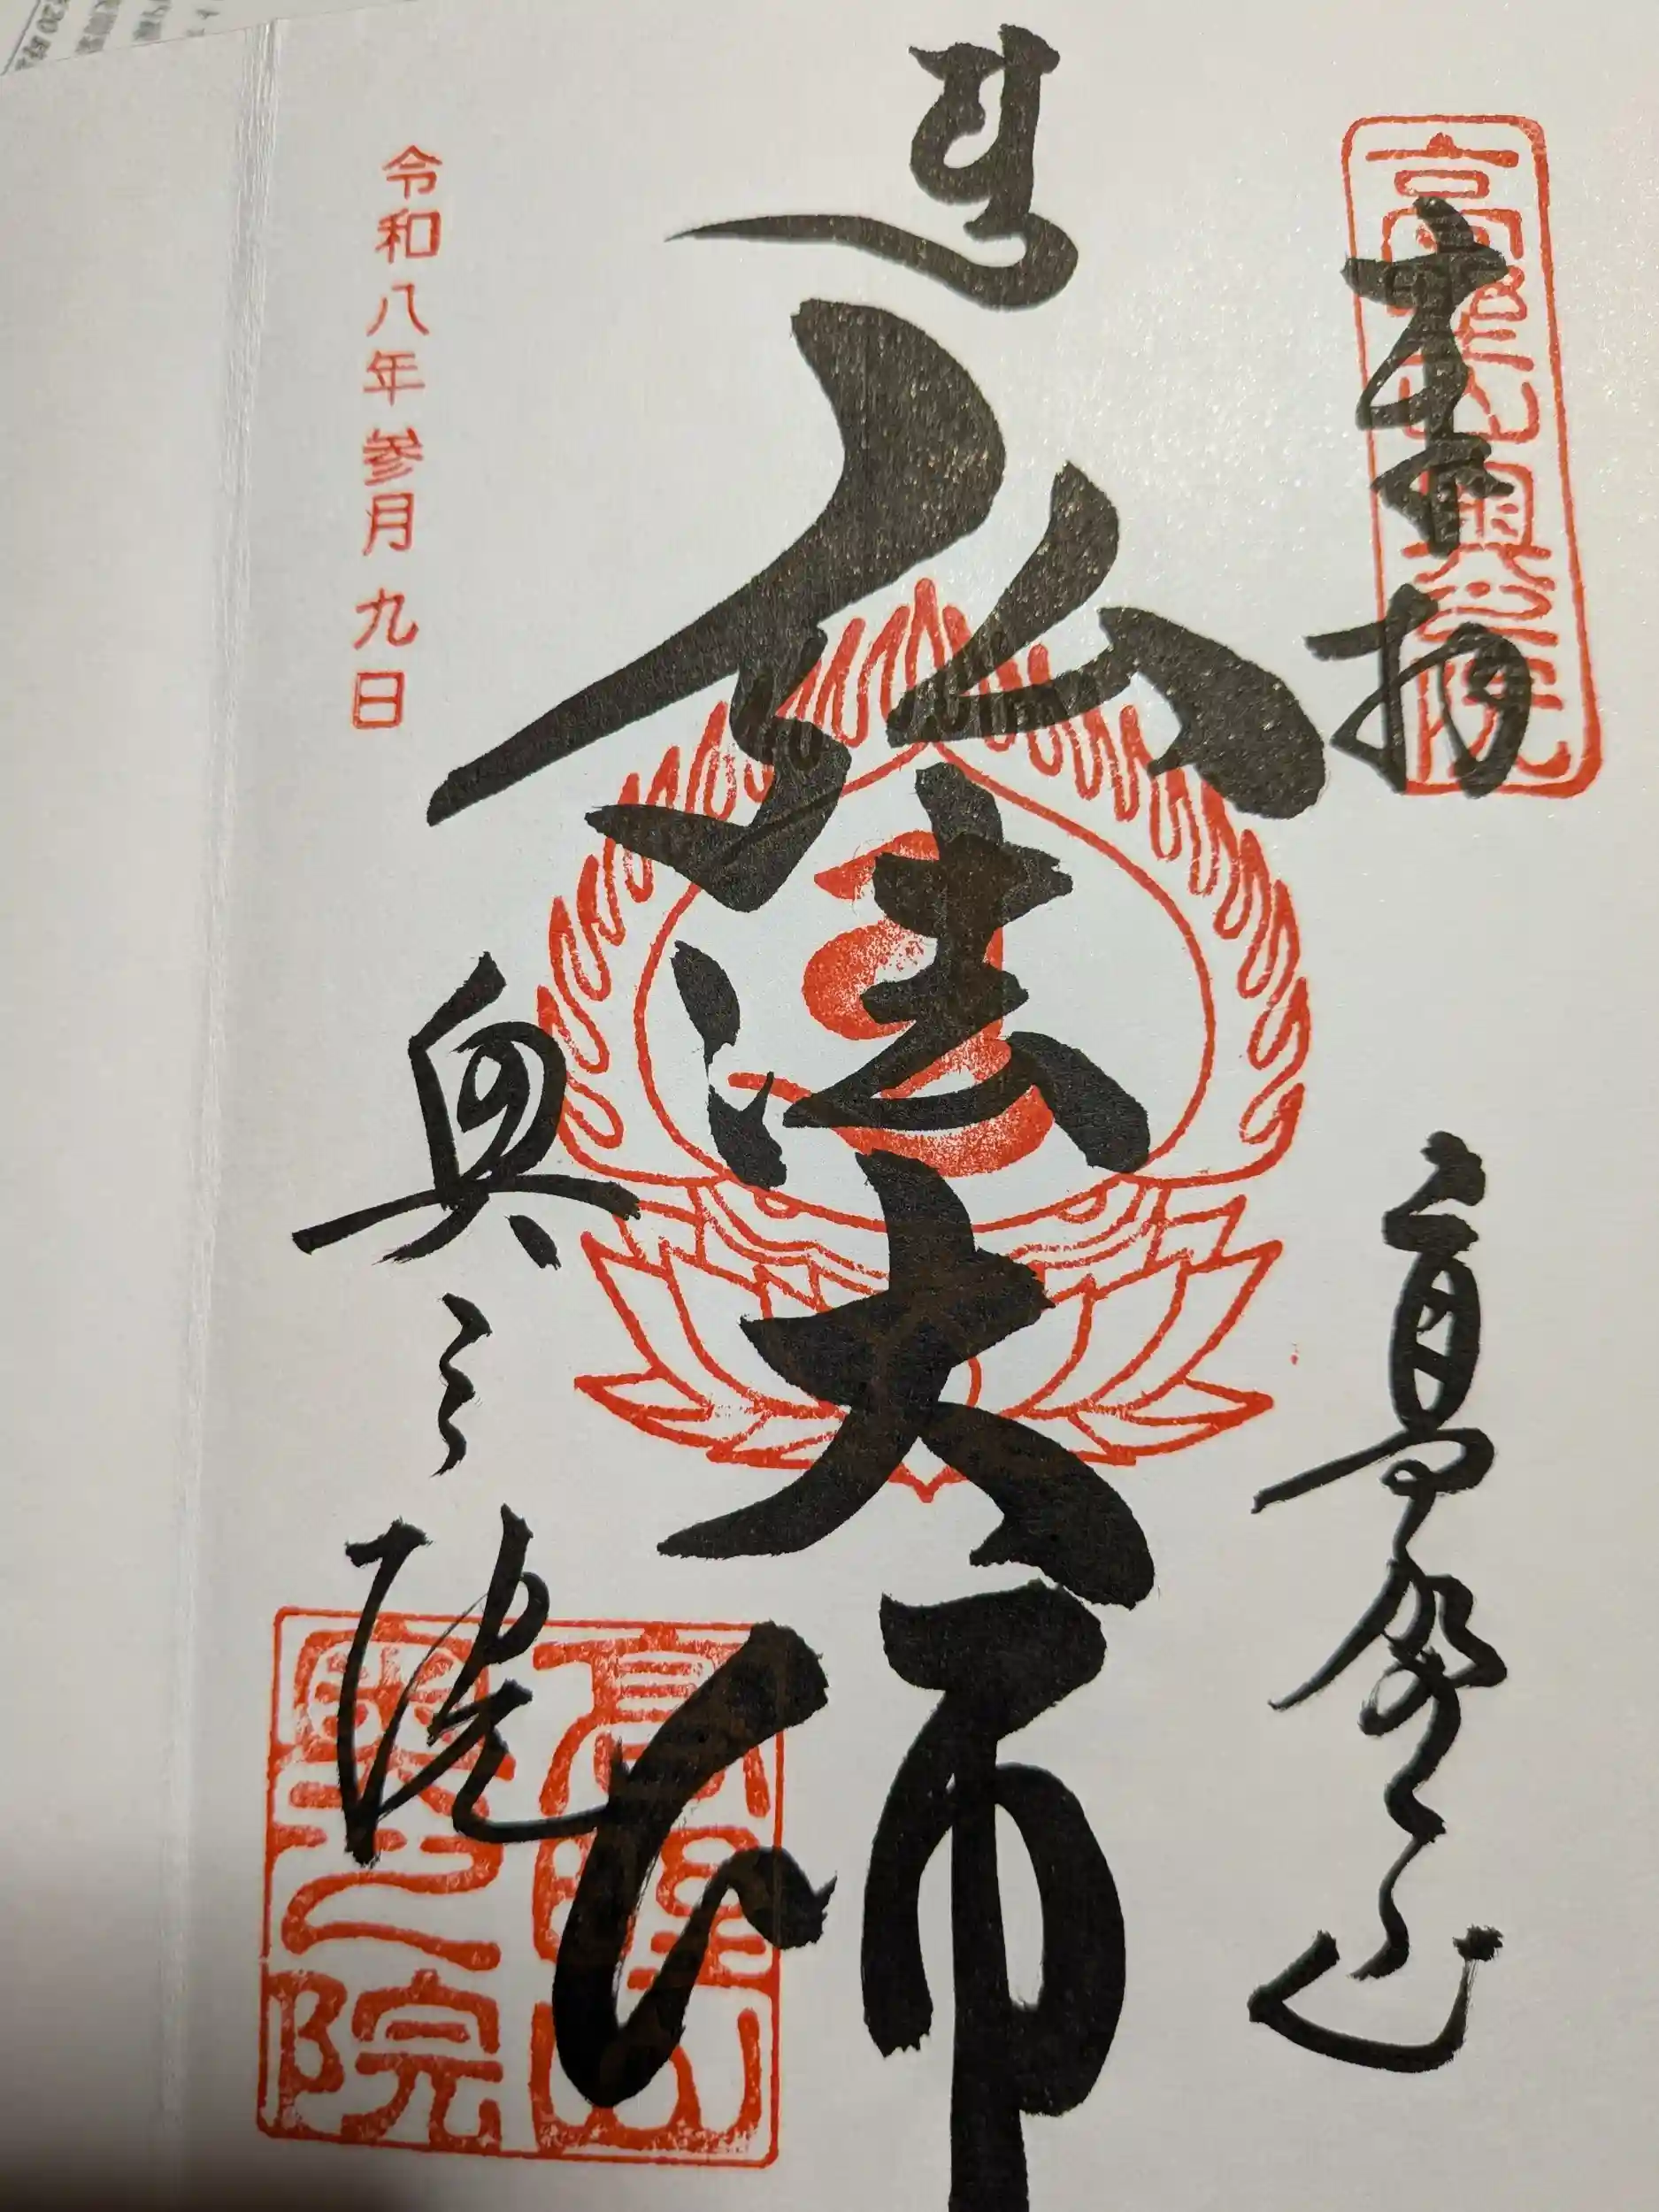 奉拝
高野山奥之院
高野山
弘法大師
奥之院
高野山
奥之院
令和八年参月九日